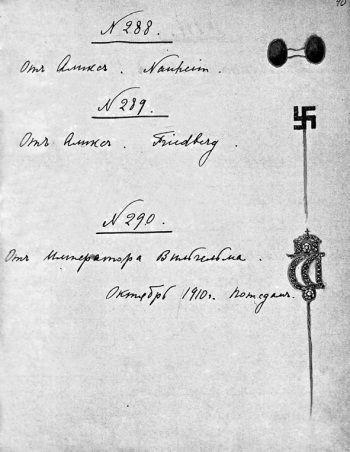 40
N 288.
Отъ Аликсъ. Nauheim.
N 289.
Отъ Аликсъ. Friedberg.
N 290.
Отъ Императора Вильгельма.
Октябрь 1910 г. Потсдамъ.